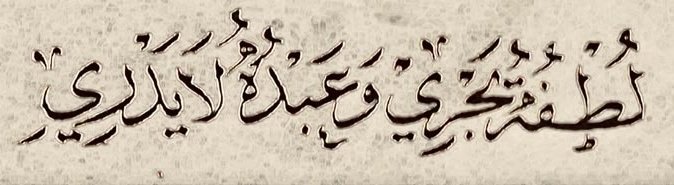 لُطْفُهُ يَجْرِي وَعَبْدُهُ لَا يَدْرِي